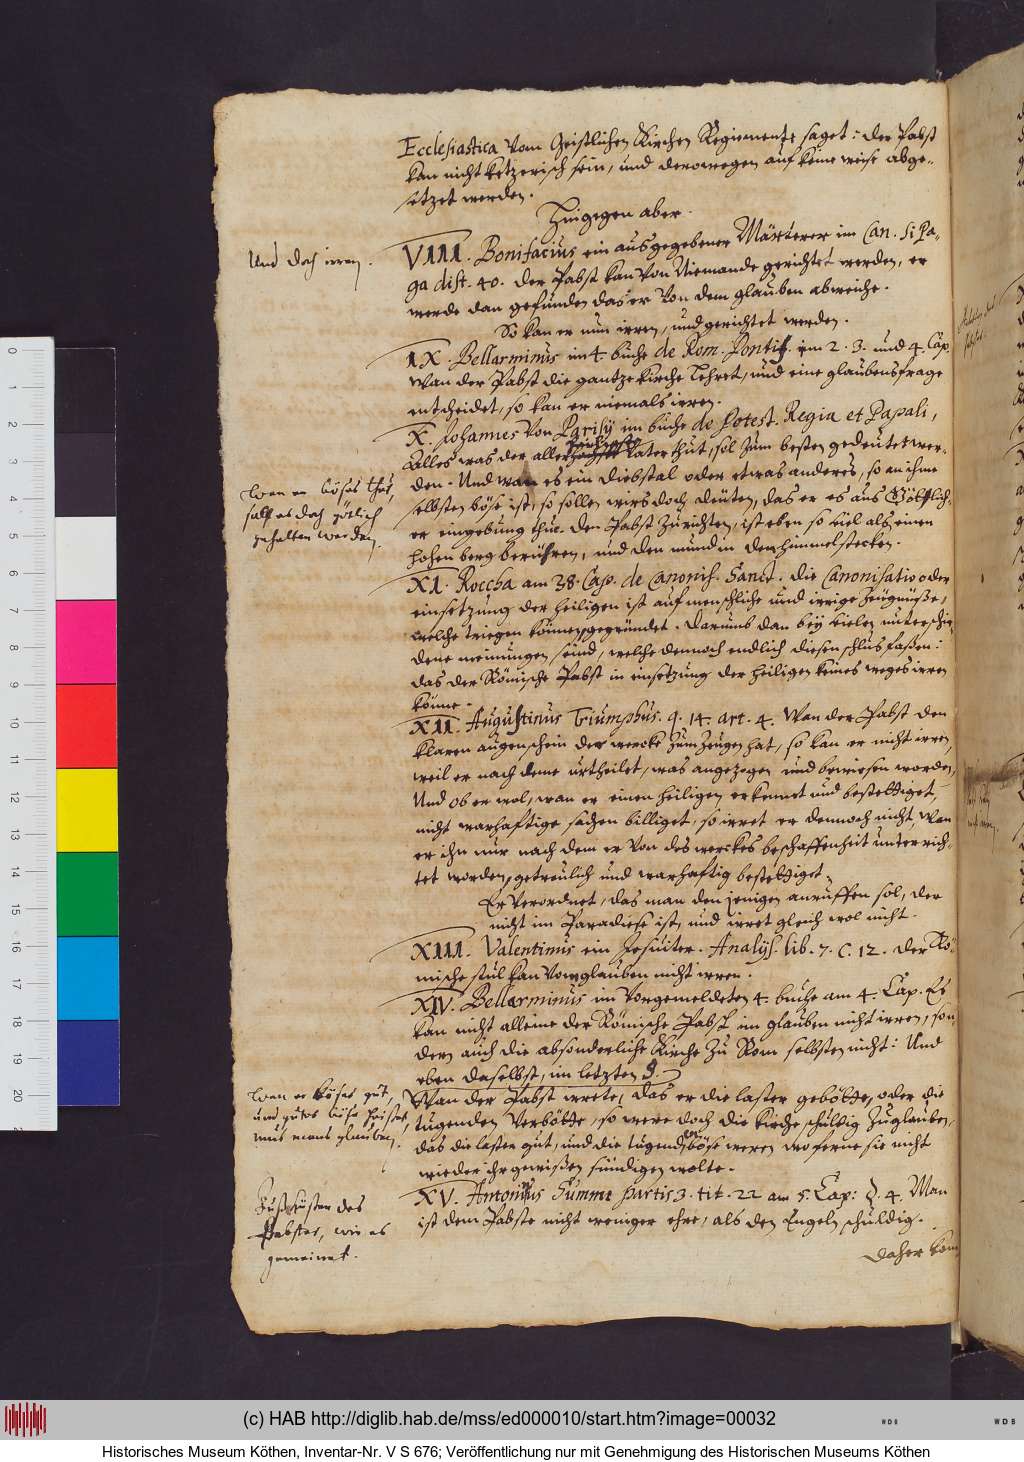 Ecclesiastica Vom Geistlichen Kirchen Regiemente saget: der Pabst
kan nicht ketzerisch sein, und derowegen auf keine weise abge-
setzet werden.
Hingegen aber.
Und doch irren.
VIII. Bonifacius ein ausgegebener Märterer im Can. Si Pa-
pa dist. 40. der Pabst kan Von Niemande gerichtet werden, er
werde dan gefunden das er Von dem glauben abweiche.
So kan er nun irren, und gerichtet werden.
IX. Bellarminus im 4. buche de Rom. Pontif. im 2. 3. und 4. Cap.
Wan der Pabst die gantze kirche Lehret, und eine glaubensfrage
entscheidet, so kan er niemals irren.
X. Johannes Von Parisÿ im buche de Potest. Regia et Papali,
Alles was der aller Vater thut, sol zum besten gedeutet wer-
den. Und wan es ein diebstal oder etwas anderes, so an ihme
selbsten böse ist, so sollen wirs doch deuten, das er es aus Göttlich-
er eingebung thue. den Pabst zurichten, ist eben so viel als einen
hohen berg berühren, und den mund in den himmel stecken.
Wan er böses thut,
solls doch götlich
gehalten werden.
XI. Roccha am 38. Cap. de Canonis. Sanct. die Canonisatio oder
einsetzung der heiligen ist auf menschliche und irrige zeugnüße,
welche triegen können, gegründet. darumb dan beÿ vielen unterschie-
dene meinungen seind, welche dennoch endlich diesen schlus faßen:
das der Römische Pabst in einsetzung der heiligen keines weges irren
könne.
XII. Augustinus Triumphus. q. 14. art. 4. Wan der Pabst den
klaren augenschein der wercke zum zeugen hat, so kan er nicht irren,
weil er nach deme urtheilet, was angezogen und bewiesen worden,
Und ob er wol, wan er einen heiligen erkennet und bestettiget,
nicht warhaftige sachen billiget, so irret er dennoch nicht, wan
er ihn nur nach dem er Von des werckes beschaffenheit unterrich-
tet worden, getreulich und warhaftig bestettiget.
Er Verordnet, das man den jenigen anruffen sol, der
nicht im Paradiese ist, und irret gleich wol nicht.
XIII. Valentinus ein Jesuiter. Analys. lib. 7. C. 12. der Rö-
mische stul kan Vom glauben nicht irren.
XIV. Bellarminus im Vorgemeldeten 4. buche am 4. Cap. Es
kan nicht alleine der Römische Pabst im glauben nicht irren, son-
dern auch die absonderliche Kirche zu Rom selbsten nicht: Und
eben daselbst, im letzten §.
Wan er böses gut,
und gutes böse heisset,
mus mans glauben.
Wan der Pabst irrete, das er die laster gebötte, oder die
tugenden Verbötte, so were doch die kirche schuldig zuglauben,
das die laster gut, und die tugenden böse weren, wo ferne sie nicht
wieder ihr gewißen sündigen wolte.
Fußküssen des
Pabstes, wie es
gemeinet.
XV. Antoninus Summæ partis 3. tit. 22 am 5. Cap: §. 4. Man
ist dem Pabste nicht weniger ehre, als den Engeln schuldig.
Daher kom
(c) HAB http://diglib.hab.de/mss/ed000010/start.htm?image=00032
WDB
WDB
Historisches Museum Köthen, Inventar-Nr. V S 676; Veröffentlichung nur mit Genehmigung des Historischen Museums Köthen